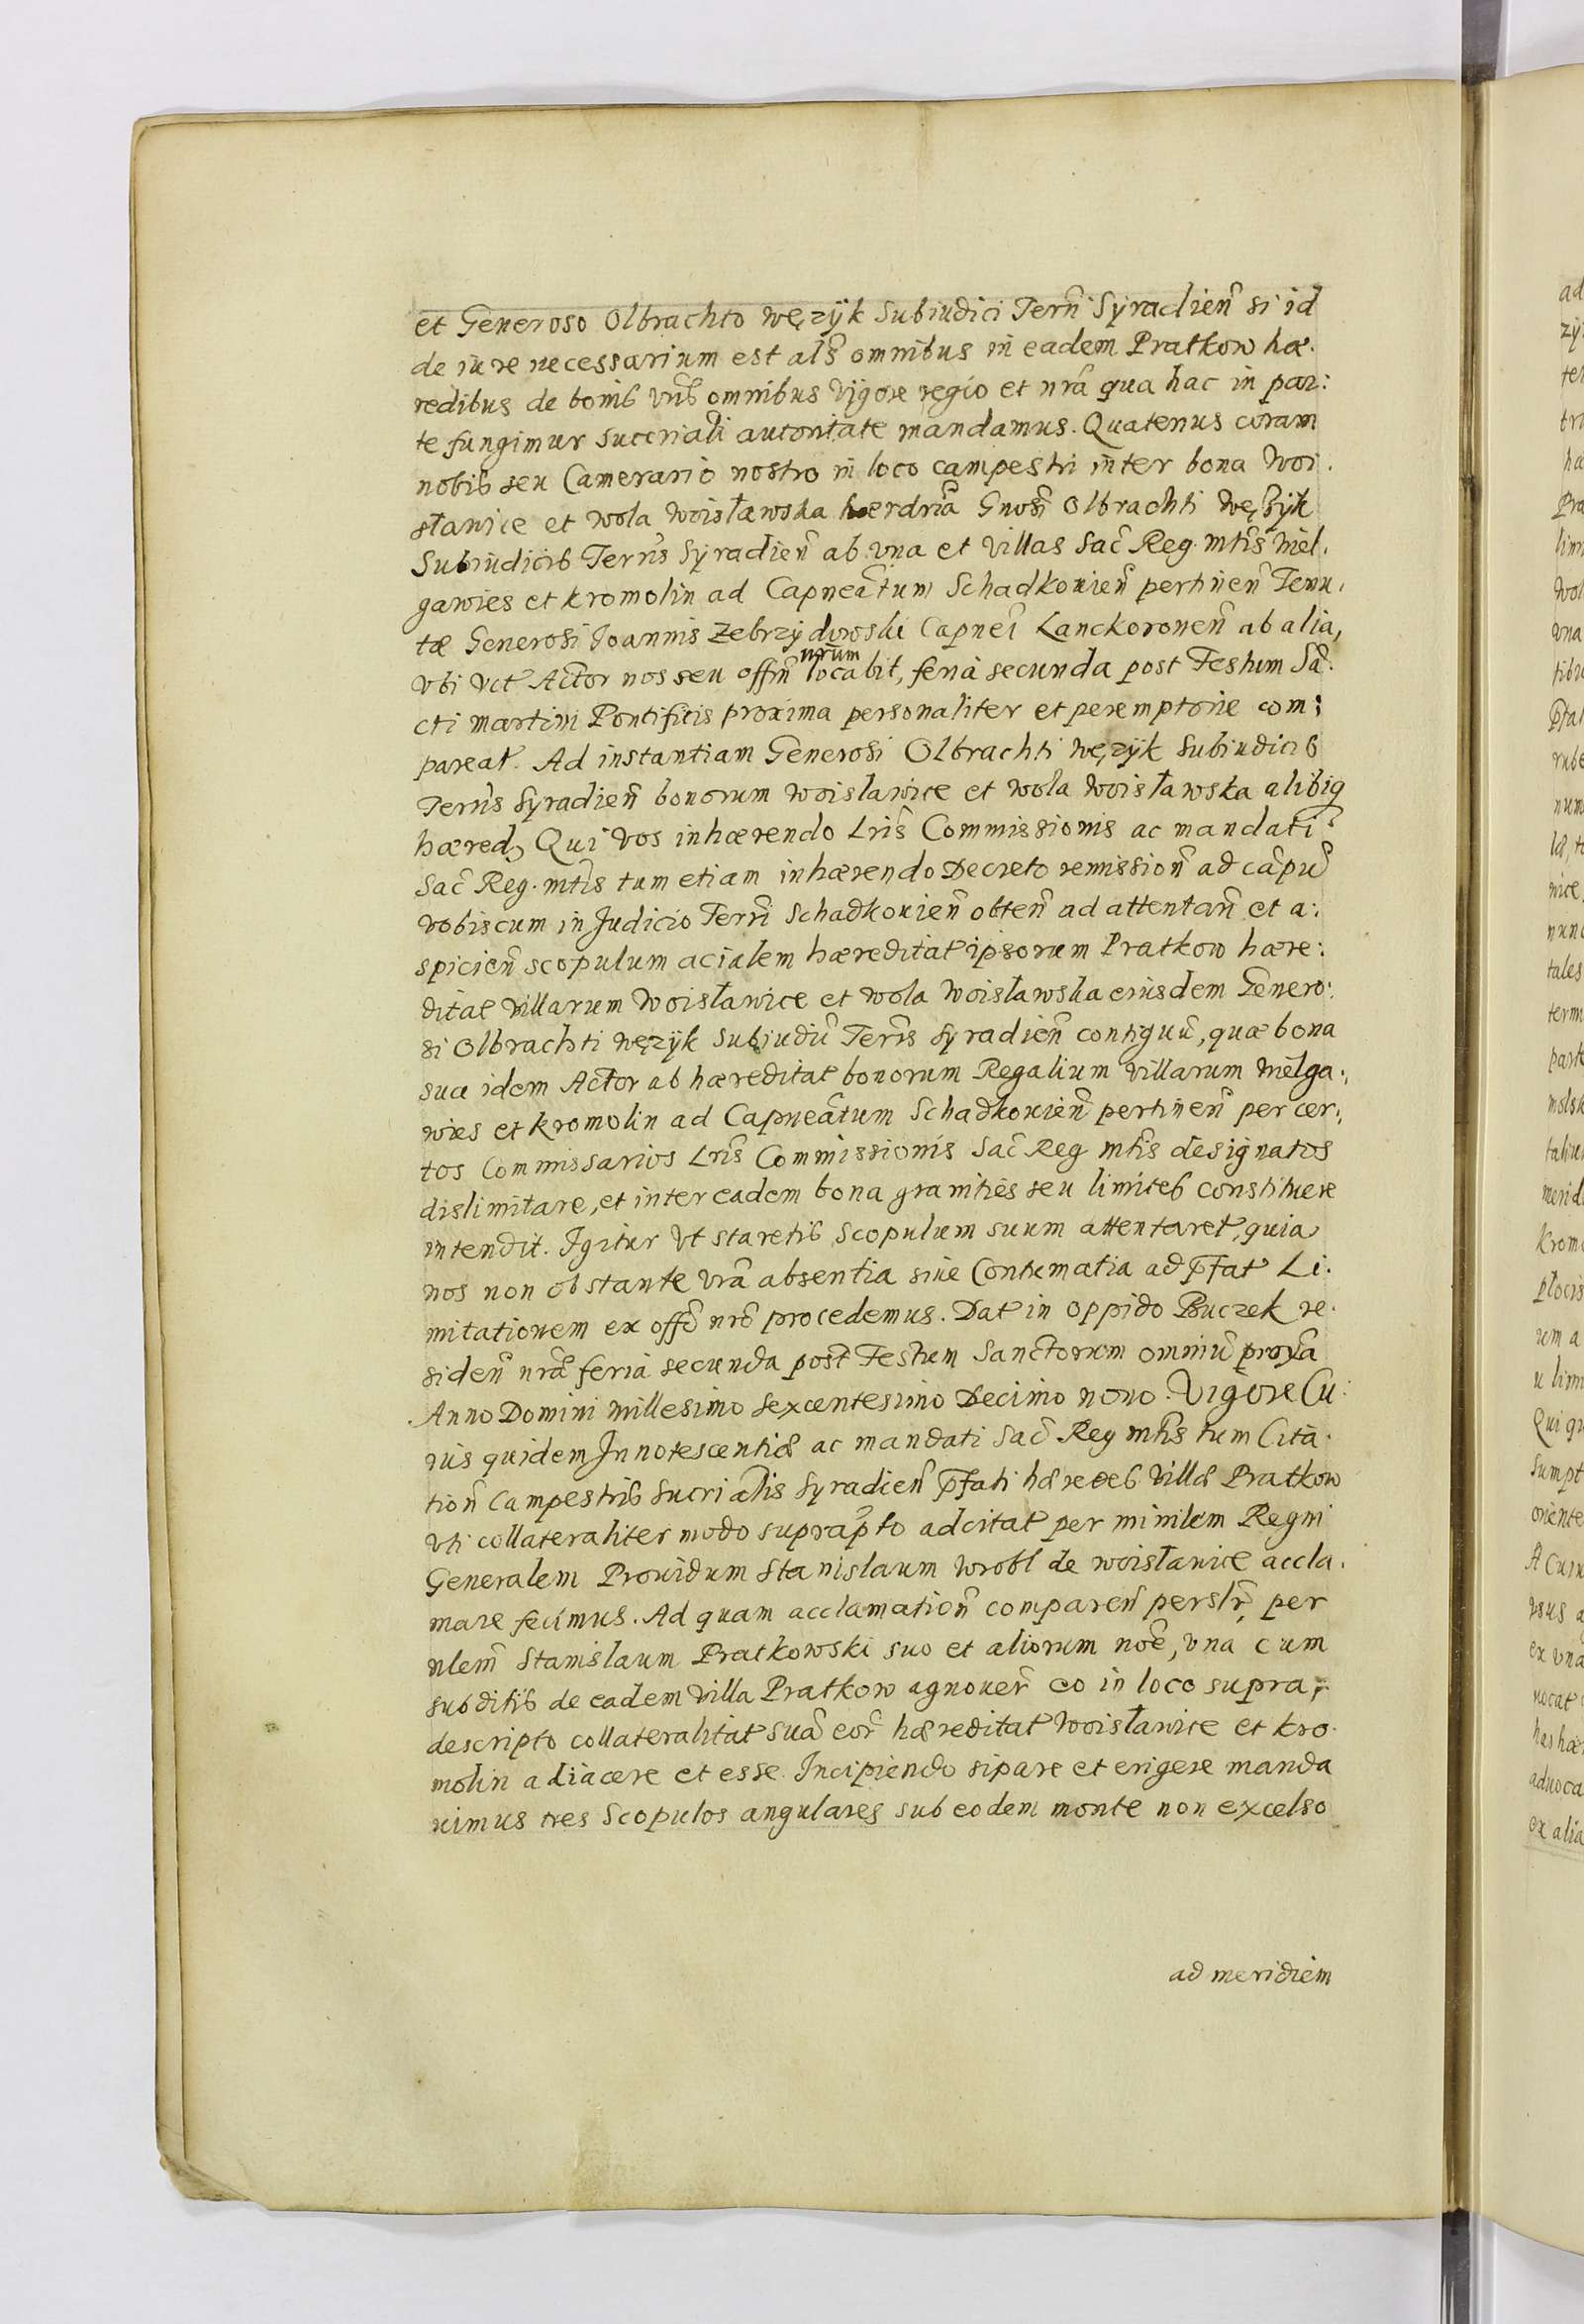 et Generoso Olbrachto Węzÿk Subiudici Terrñ Sÿradieñ si id
de iure necessarium est als̃ omnibus in eadem Pratkow hæ.
redibus de bonis vrĩs omnibus vÿgore regio et nrã qua hac in par:
te fungimur succriali autoritate mandamus. Quatenus coram
nobis seu Camerario nostro in loco campestri inter bona Woi.
sławice et Wola Woisławska hærdriã Gnosĩ Olbrachti Węzÿk
Subiudicis Terrñs Sÿradieñ ab vna et villas Sac̃ Reg. mtĩs Miel.
gawies et Kromolin ad Capneãtum Schadkouieñ pertineñ Tenu.
tæ Generosi Joannis Zebrzÿdowski Capneĩ Lanckoroneñ ab alia,
vbi vct Actor nos seu offm̃ nr̃um locabit, feria secunda post Festum Sã.
cti Martini Pontificis proxima personaliter et peremptorie com:
pareat. Ad instantiam Generosi Olbrachti Węzÿk Subiudicis
Terrñs Syradieñ bonorum Woislawice et Wola Woisławska alibiq
hæred, Qui vos inhærendo Lrĩs Commissionis ac mandati
Sac̃ Reg. mtĩs tum etiam inhærendo Decreto remissioñ ad cãpũ
vobiscum in Judicio Terrĩ Schadkouieñ obteñ ad attentañ et a:
spicieñ scopulum acialem hæreditat ipsorum Pratkow hære:
ditat villarum Woisławice et Wola Woisławska eiusdem Genero:
si Olbrachti Węzÿk Subiudic̃ Terrĩs Sÿradieñ contiguũ, quæ bona
sua idem Actor ab hæreditat bonorum Regalium villarum Mielga:
wies et Kromolin ad Capneãtum Schadkouieñ pertineñ per cer:
tos Commissarios Lrĩs Commissionis Sac̃ Reg mtĩs designatos
dislimitare, et inter eadem bona granities seu limites constituere
intendit. Igitur vt staretis scopulum suum attentaret, quia
nos non obstante vrã absentia siue Contumatia ad p̃fat Li.
mitationem ex offõ nrõ procedemus. Dat in oppido Buczek re.
sideñ nrã feria secunda post Festum Sanctorum omniũ proxã
Anno Domini millesimo sexcentesimo Decimo nono. Vigore Cu:
ius quidem Innotescentiæ ac mandati Sac̃ Reg mtĩs tum Cita.
tioñ Campestris Sucriãlis Syradieñ p̃fati hæredes villæ Pratkow
vti collateraliter modo suprap̃to adcitat per minĩlem Regni
Generalem Prouidum Stanislaum Wrobl de Woisławice accla.
mare fecimus. Ad quam acclamatioñ compareñ perslr̃, per
nlem̃ Stanislaum Pratkowski suo et aliorum noẽ, vna cum
subditis de eadem villa Pratkow agnouer̃ eo in loco supra,
descripto collateralitat suã eor̃ hæreditat Woisławice et Kro.
molin adiacere et esse. Incipiendo sipare et erigere manda
uimus tres Scopulos angulares sub eodem monte non excelso
ad meridiem